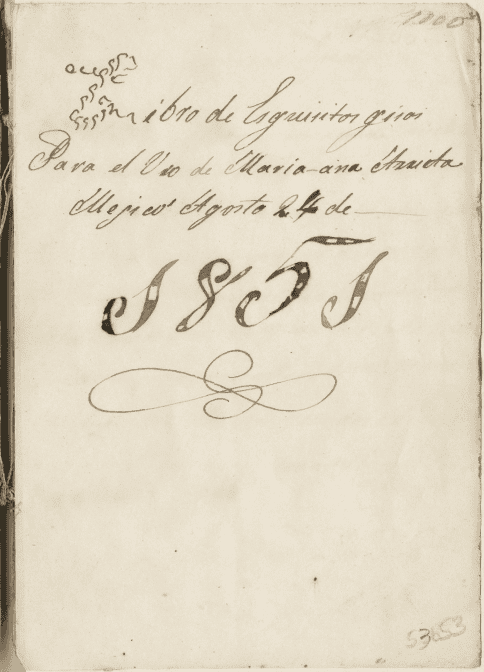 1100
Libro de Esquisitos gisos
Para el Uso de Maria-ana Arrieta
Mejico Agosto 24 de
1851
53653